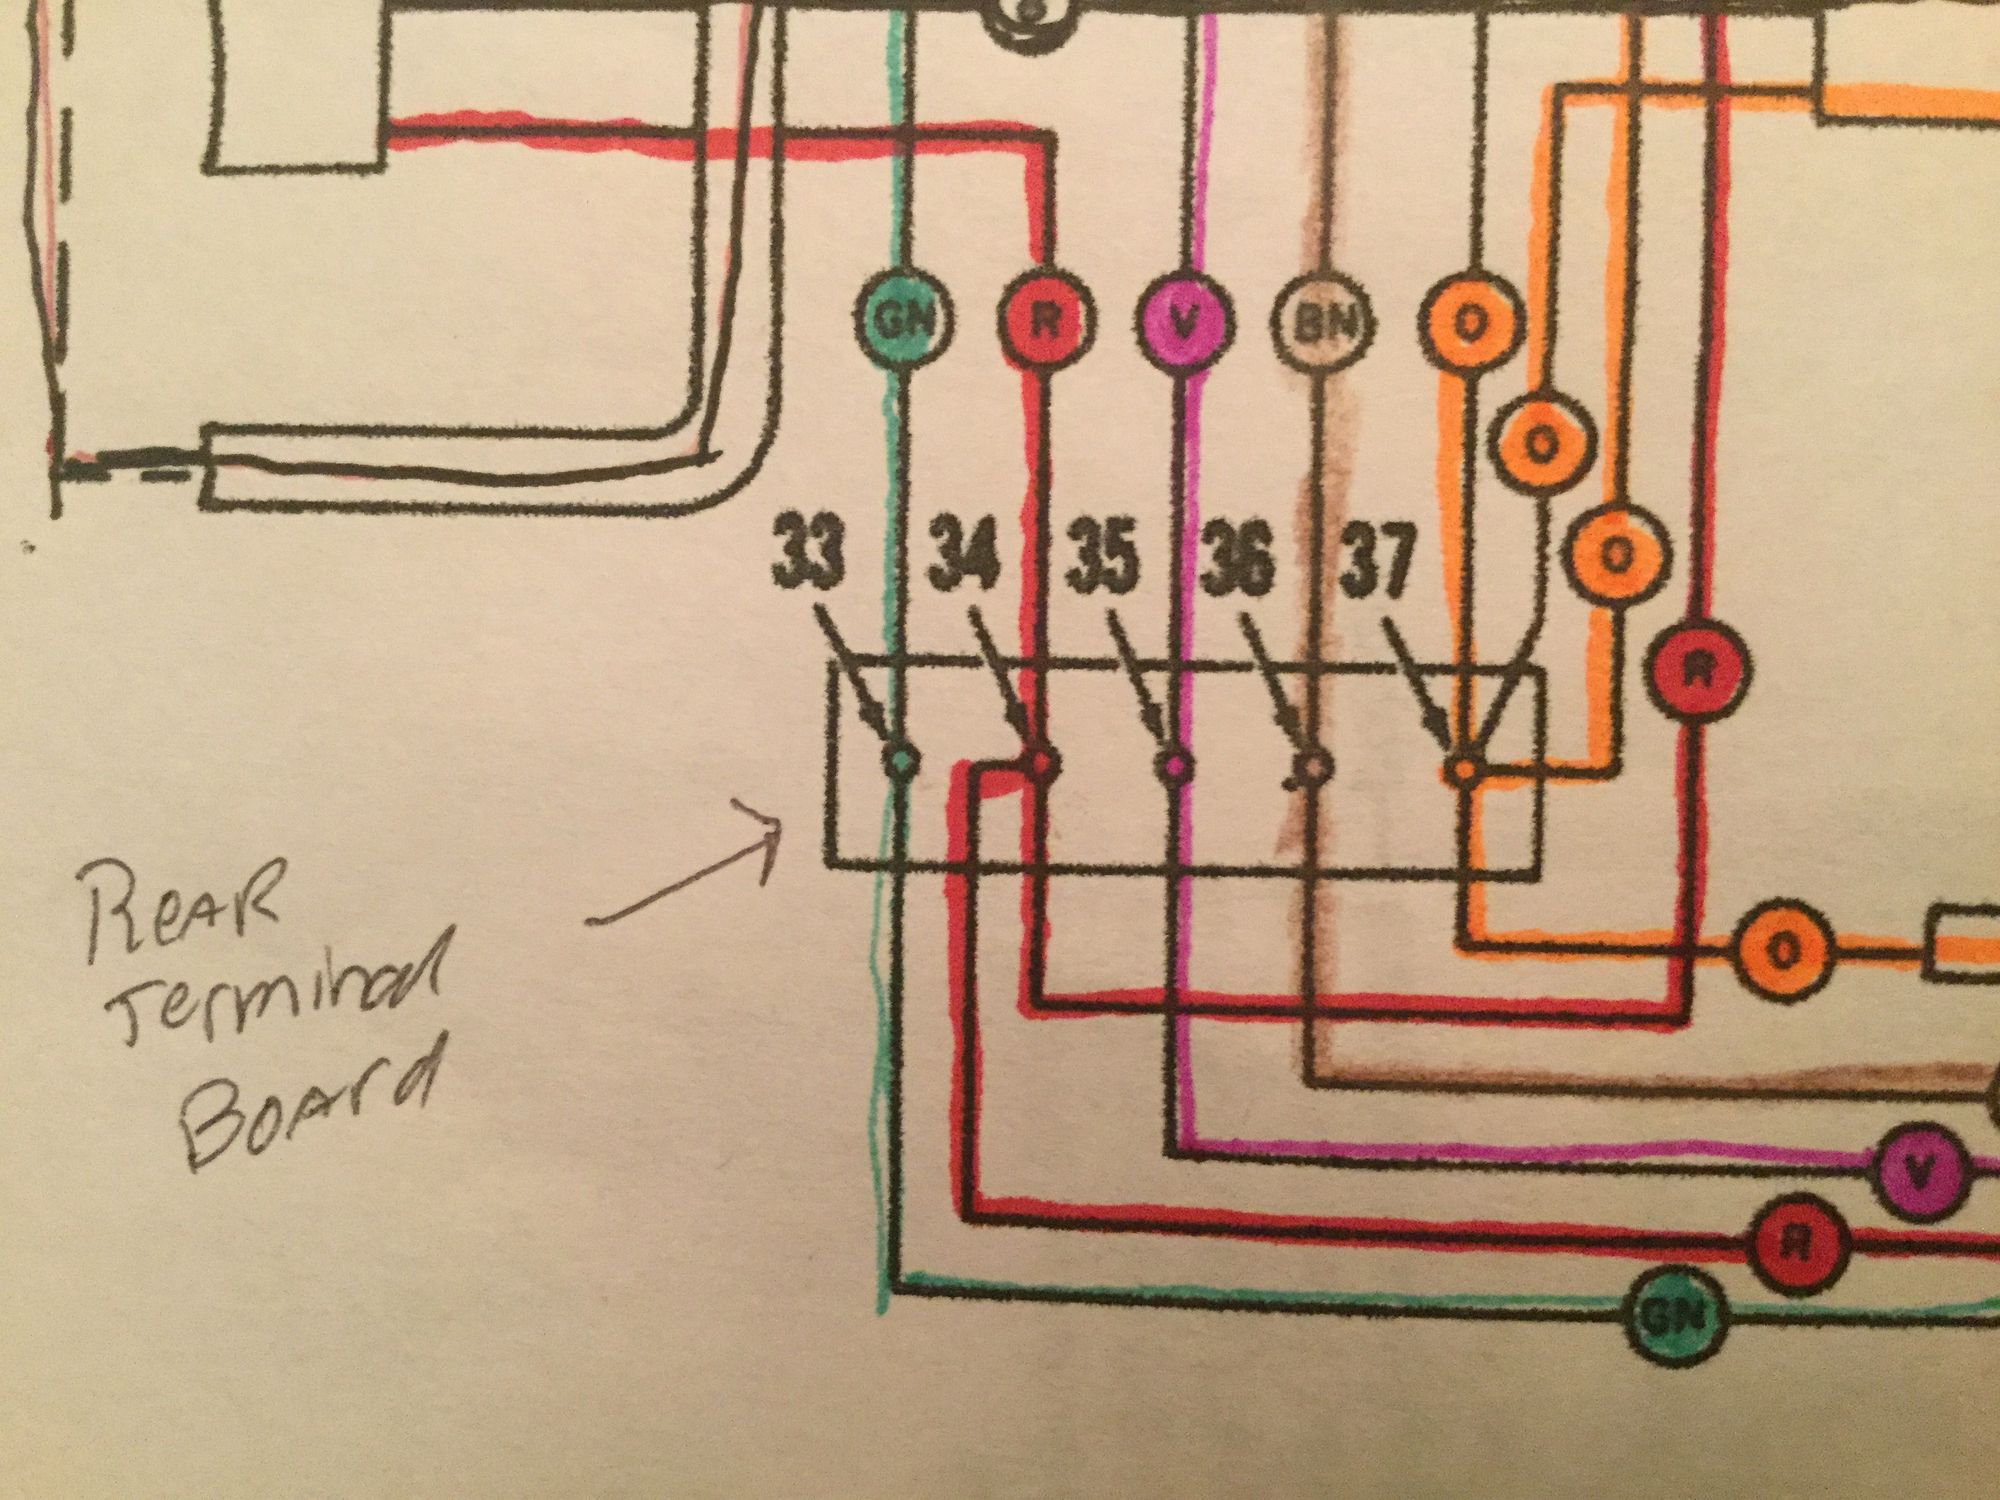 GN R V BN O
O
O
33 34 35 36 37
R
O
Rear
Terminal
Board
V
R
GN